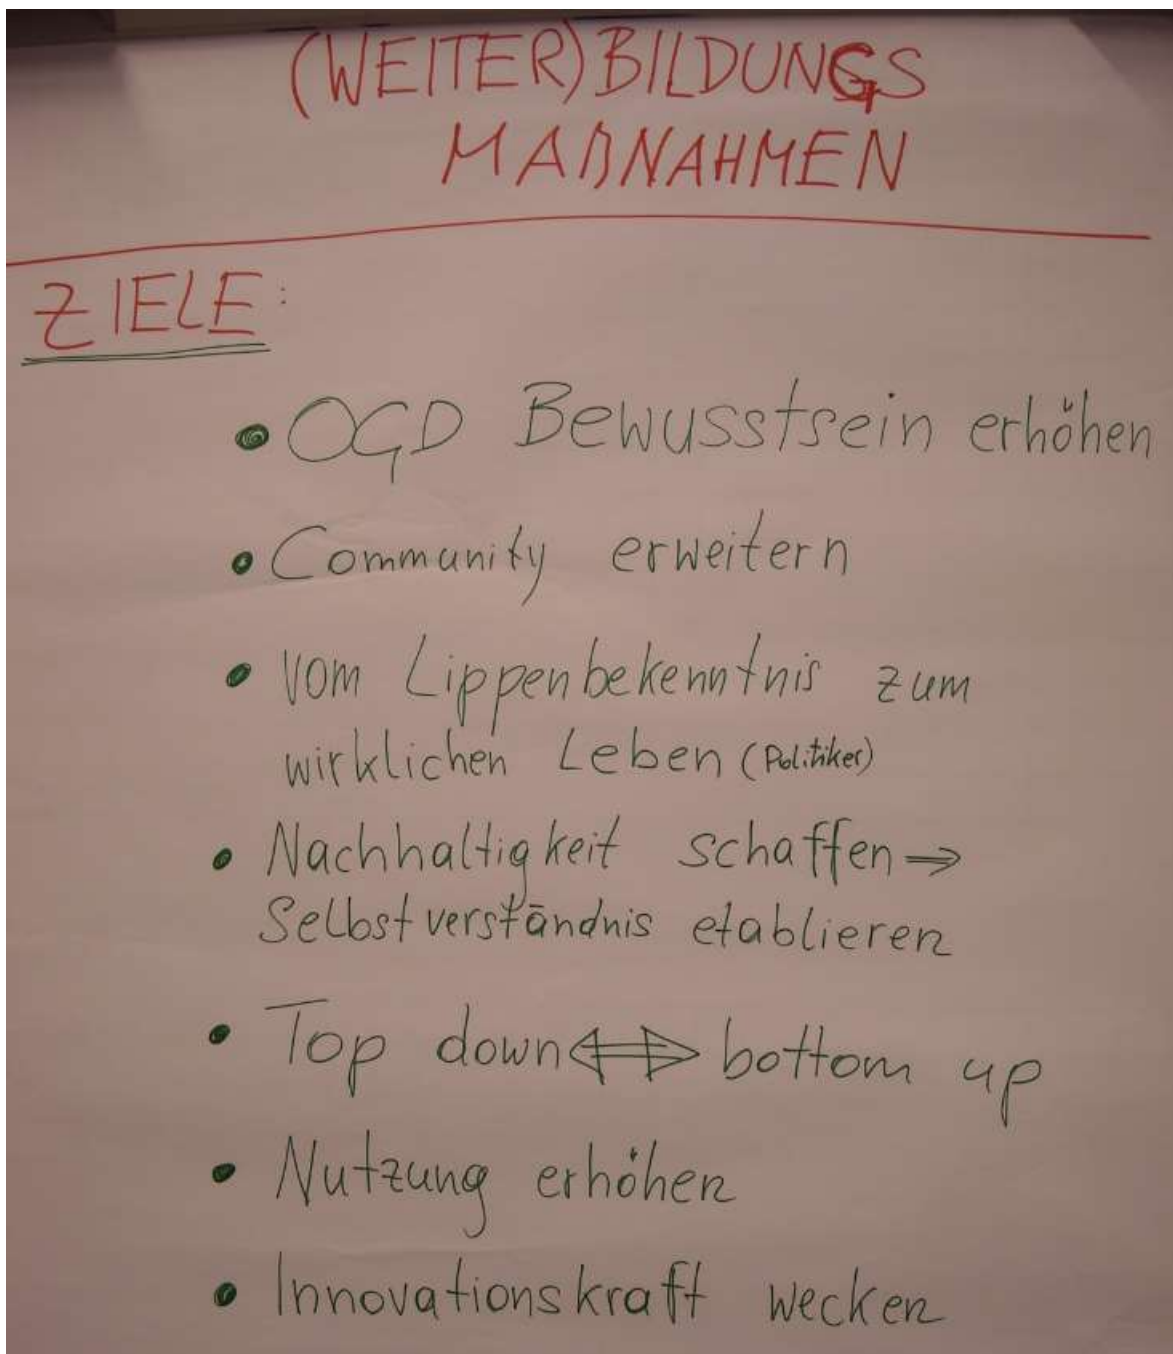 (WEITER)BILDUNGS
MAßNAHMEN
ZIELE:
• OGD Bewusstsein erhöhen
• Community erweitern
• vom Lippenbekenntnis zum
wirklichen Leben (Politiker)
• Nachhaltigkeit schaffen ⇒
Selbstverständnis etablieren
• Top down ⇔ bottom up
• Nutzung erhöhen
• Innovationskraft wecken